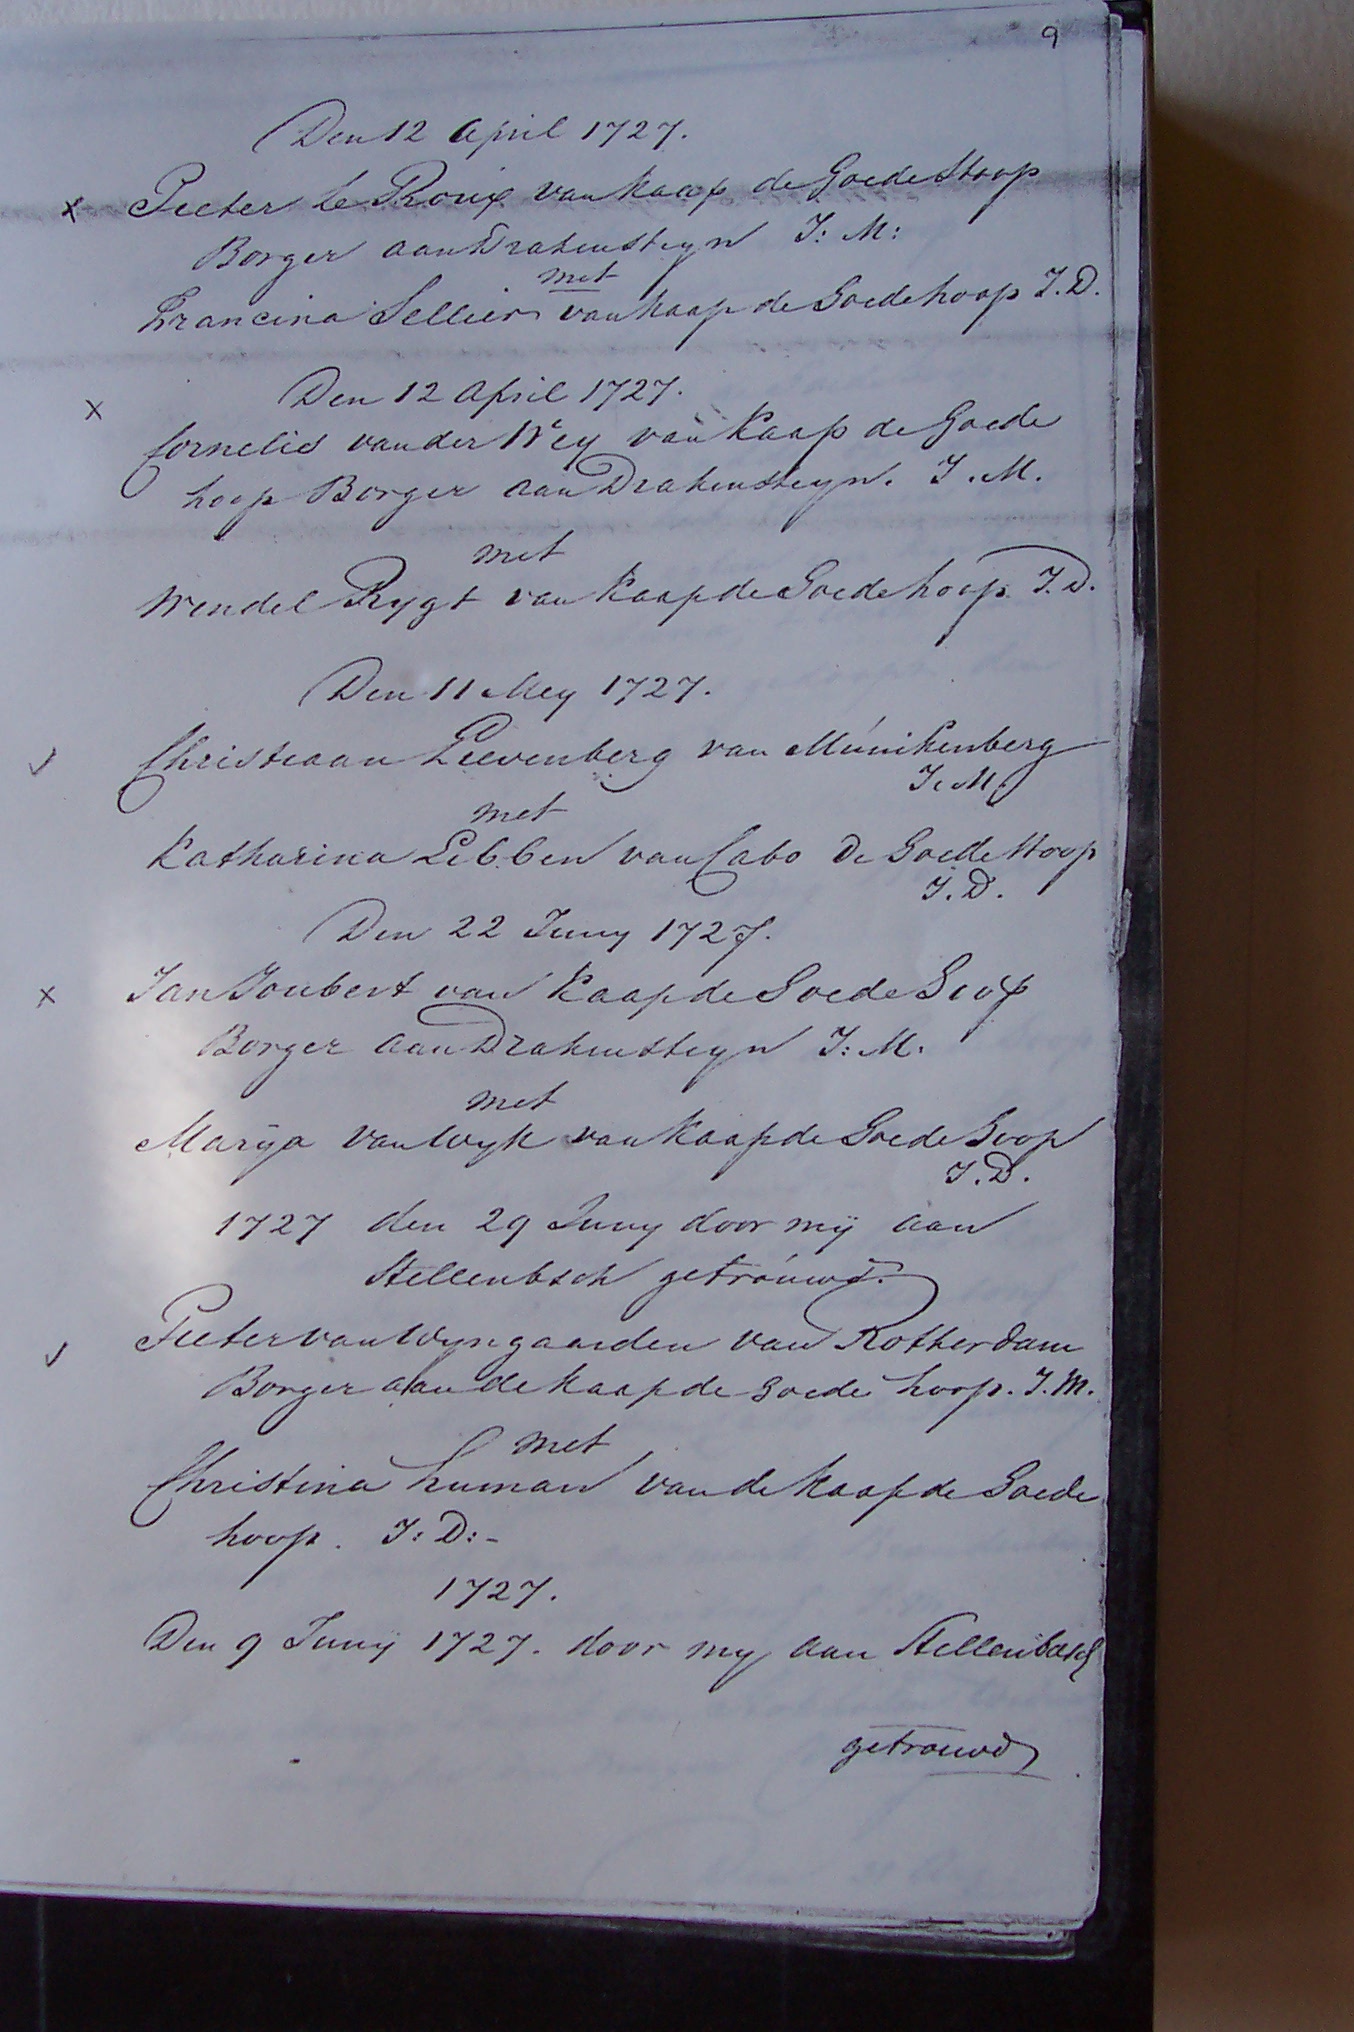 9
Den 12 April 1727.
x Pieter le Roux van Kaap de Goede Hoop
Borger aan Drakensteyn J: M:
met
Francina Sellier van Kaap de Goede hoop J. D.
Den 12 April 1727.
x
Cornelis van der Wey van Kaap de Goede
hoop Borger aan Drakensteyn. J. M.
met
Wendel Rygt van Kaap de Goede hoop J. D.
Den 11 Mey 1727.
Christiaan Lievenberg van Múnikenberg
J. M.
met
Katharina Lebben van Cabo de Goede Hoop
J. D.
Den 22 Juny 1727.
x Jan Joubert van Kaap de Goede Goop
Borger aan Drakensteyn J: M.
met
Marÿa van Wyk van Kaap de Goede Goop
J. D.
1727 den 29 Juny door mÿ aan
Stellenbsch getroúwd.
Pieter van Wyngaarden van Rotherdam
Borger aan de Kaap de Goede hoop. J. M.
met
Christina human van de Kaap de Goede
hoop. J: D:-
1727.
Den 9 Junÿ 1727. door my aan Stellenbosch
getrouwd